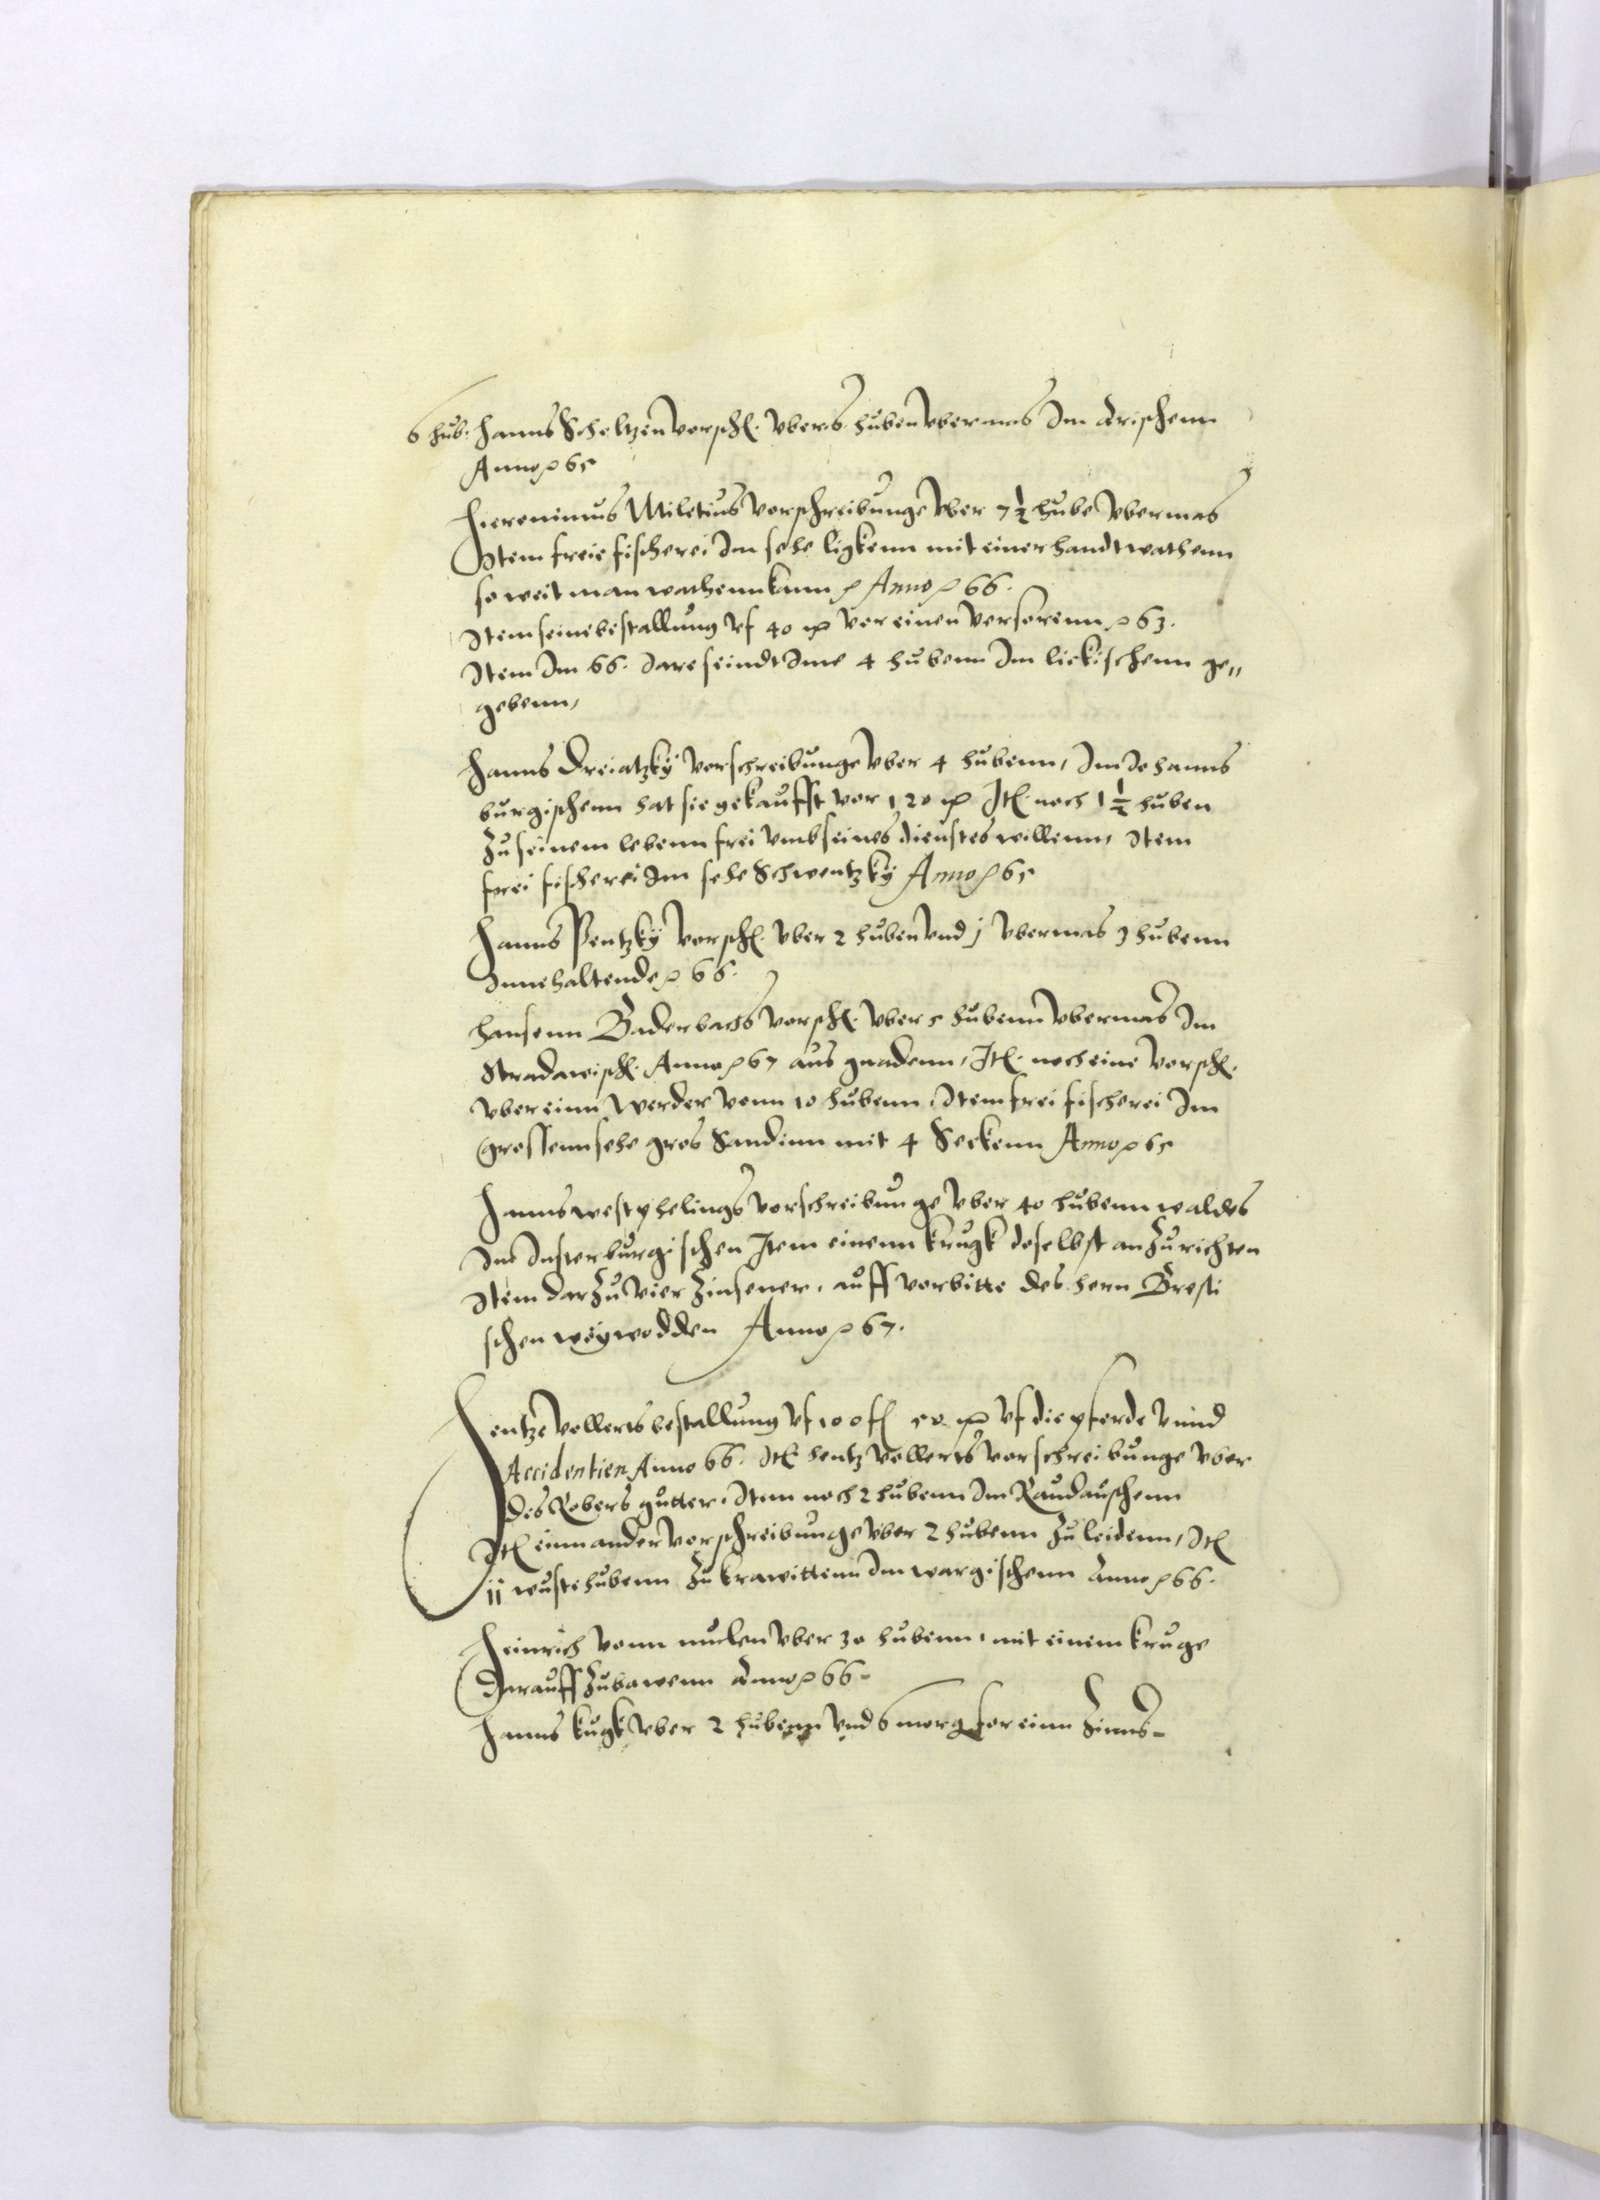 6 hub. Hanns Scheltzen vorsch. vber 6 huben vbermas Im Arischenn
Anno p 65
Hieronimus Miletius vorschreibunge vber 7 ½ hube vbermas
Item freie fischerei Im sehe ligkenn mit einer handtwathenn
so weit man wathenn kann p Anno p 66.
Item seine bestallung vf 40 mr vor einen p 63.
Item Im 66. Jare seindt Ime 4 hubenn Im lickischenn ge„
gebenn,
Hanns Dreiatzky vorschreibunge vber 4 hubenn, Im Johanns
burgischenn hat sie gekaufft vor 120 mr Itt. noch 1 ½ huben
Zu seinem lebenn frei vmb seines dienstes willenn, Item
frei fischerei Im sehe Schwentzky Anno p 65
Hanns Pentzky vorsch. vber 2 huben vnd j vbermas 3 hubenn
Innehaltende p 66.
Hansenn Baderbachs vorsch. vber 5 hubenn vbermas Im
Stradawisch. Anno p 67 aus gnadenn, Itt. noch eine vorsch.
vber einn Werder vonn 10 hubenn, Item frei fischerei Im
grossenn sehe gros Sandinn mit 4 Seckenn Anno p 65
Hanns westphelings vorschreibunge vber 40 hubenn waldes
Im Insterburgischen Item einenn krugk doselbst anzurichten
Item darzu vier Zinsener, auff vorbitte des hern Bresti
schen weywodden Anno p 67.
Hentze vollerts bestallung vf 100 fl 50 mr vf die pferde vnnd
Accidentien Anno 66. Itt hentz vollerts vorschreibunge vber
des Robers gutter, Item noch 2 hubenn Im Kaudauschenn
Itt einn ander vorschreibunge vber 2 hubenn zu leidenn, Itt
ij wuste hubenn zu krawittenn Im wargischenn Anno p 66.
Heinrich vonn mulen vber 30 hubenn, mit einem kruge
Darauff zubawenn Anno p 66.
Hanns kugk vber 2 hubenn vnd 6 morg for einn Zinns-